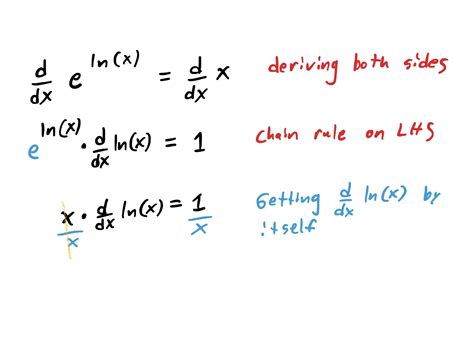 d/dx e^ln(x) = d/dx x deriving both sides
e^ln(x) · d/dx ln(x) = 1 Chain rule on LHS
x/x · d/dx ln(x) = 1/x Getting d/dx ln(x) by
itself